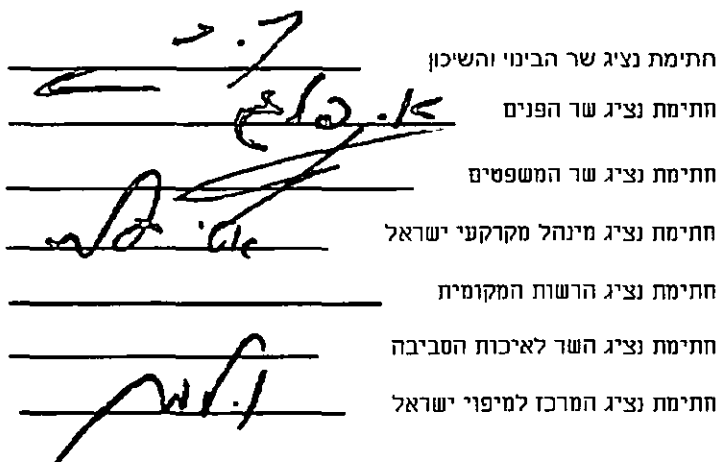 חתימת נציג שר הבינוי והשיכון
חתימת נציג שר הפנים
חתימת נציג שר המשפטים
חתימת נציג מינהל מקרקעי ישראל
חתימת נציג הרשות המקומית
חתימת נציג השר לאיכות הסביבה
חתימת נציג המרכז למיפוי ישראל